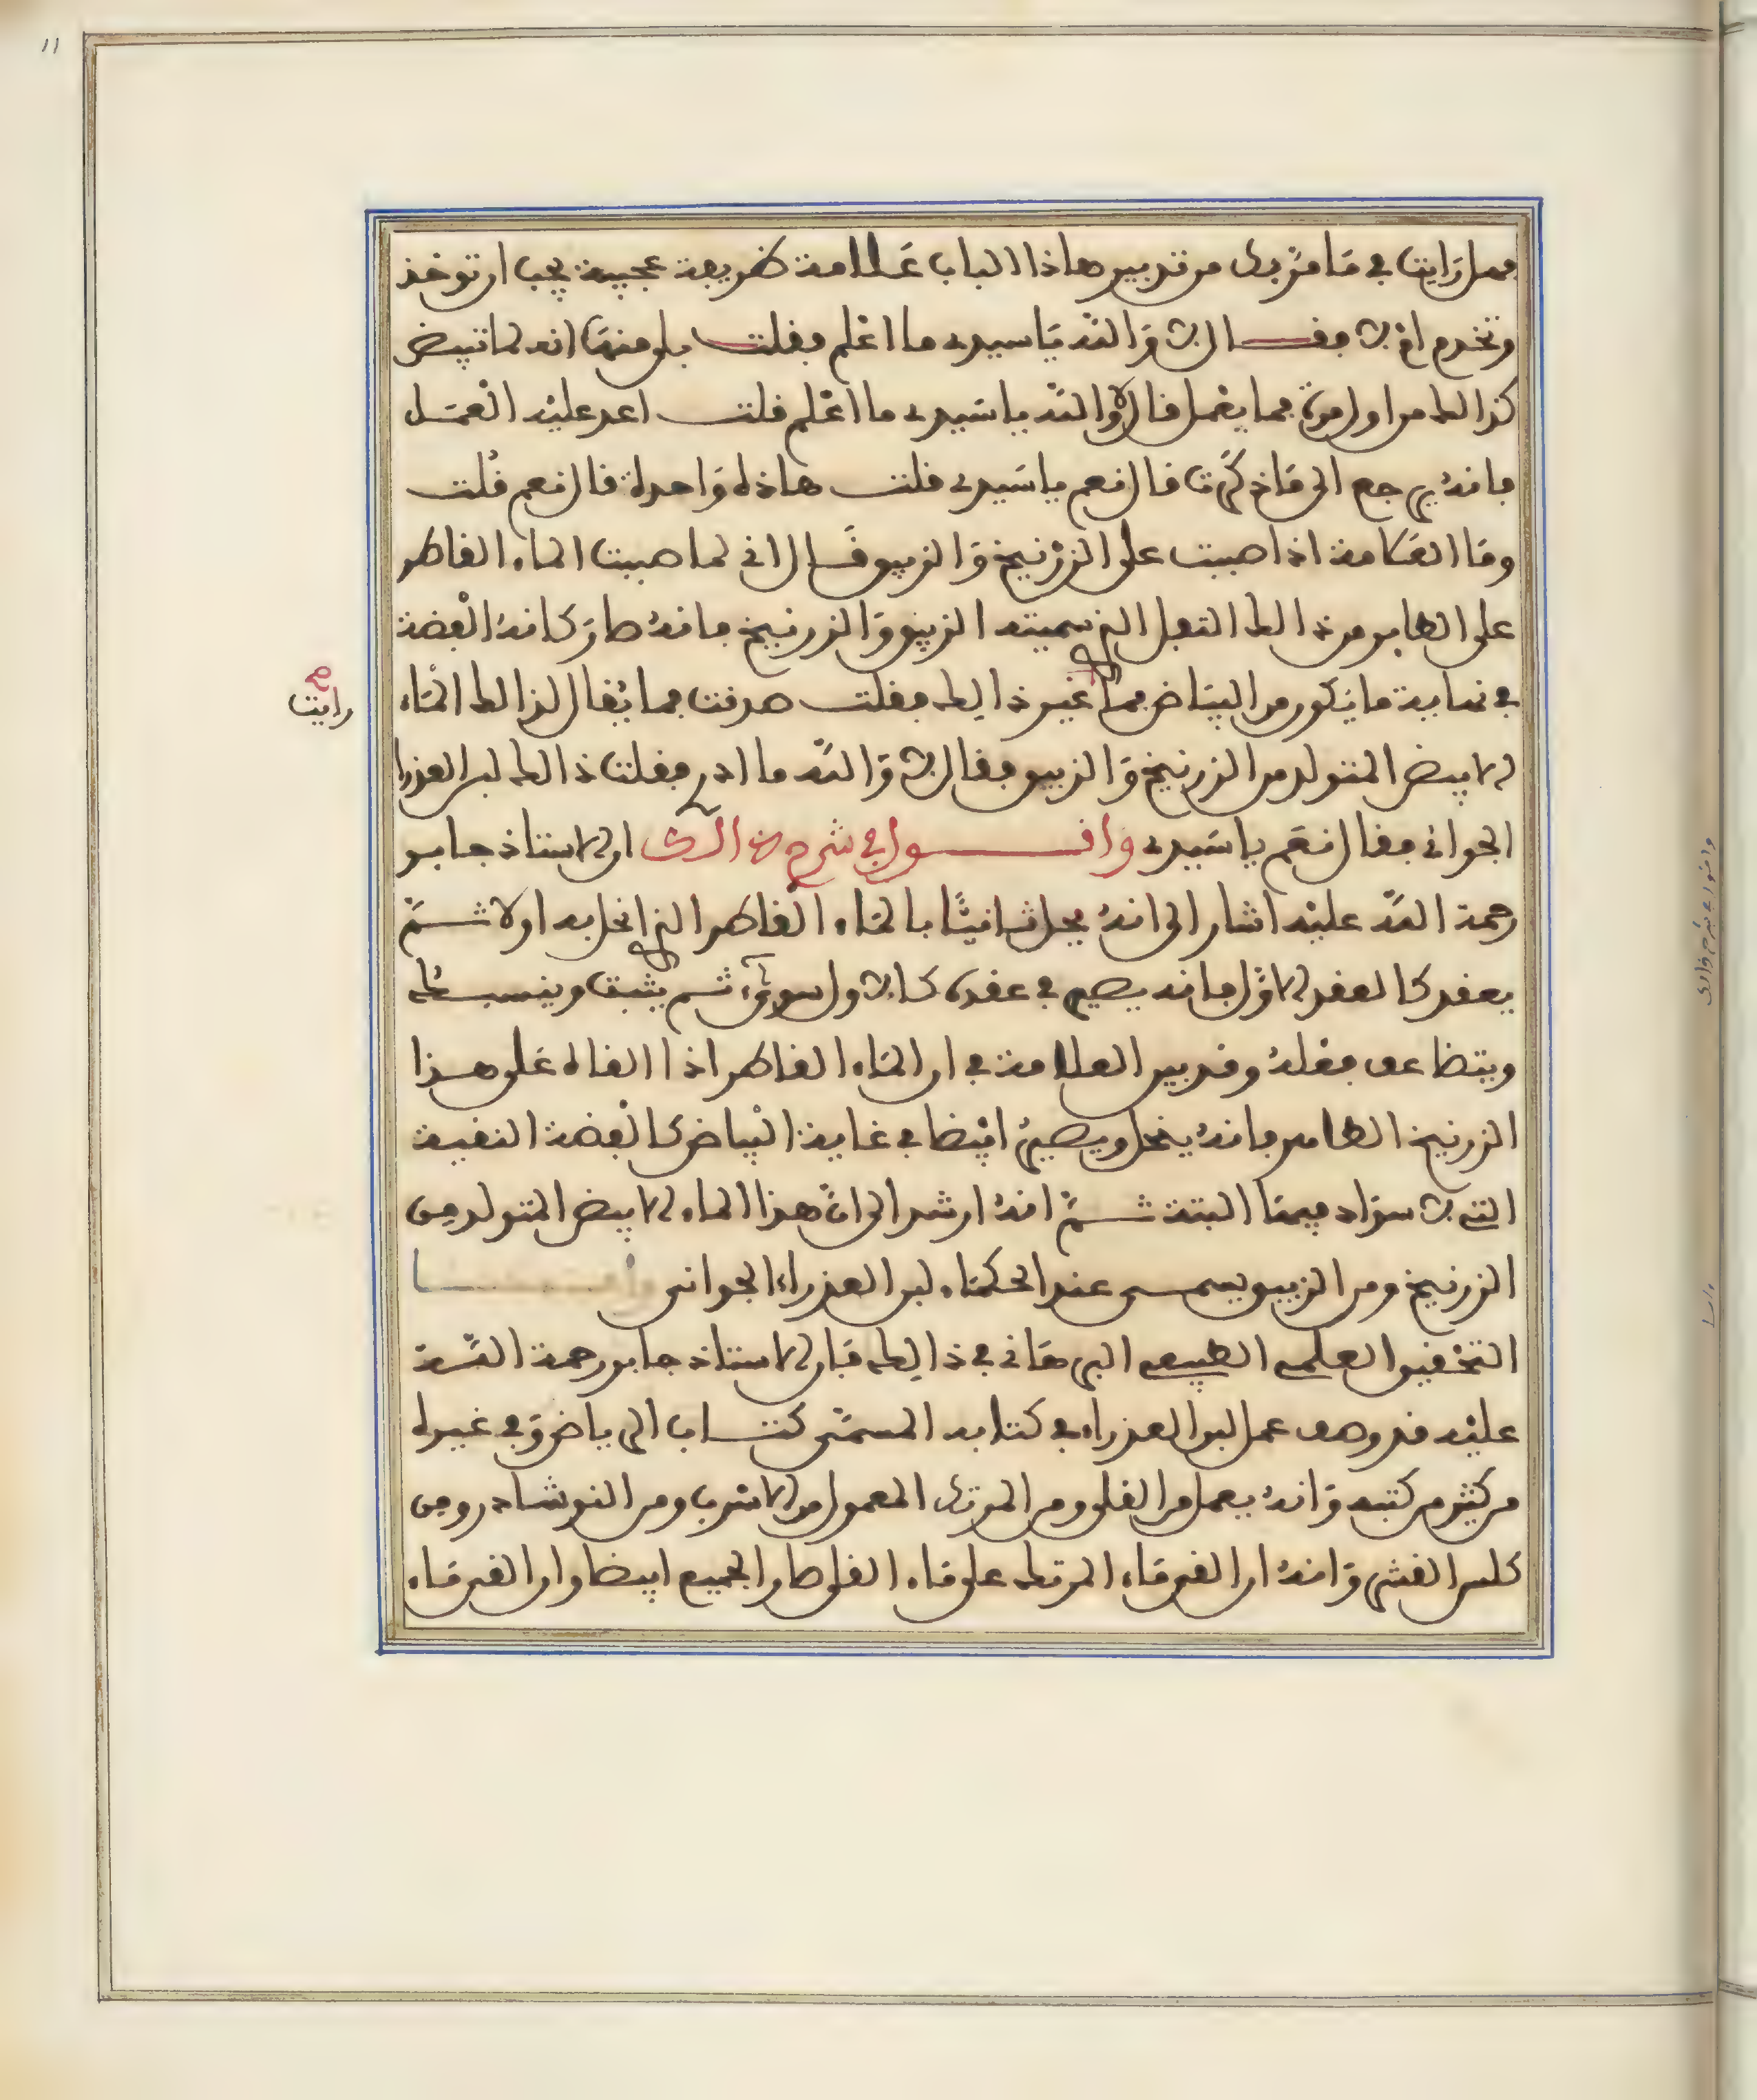 ١١
فهل رايت في ما مر بك من تدبير هاذا الباب علامة ظريفة عجيبة يجب ان توخذ
وتخدم ام لا فقال لا والله يا سيدي ما اعلم فقلت بلى منها انه لما تبيض
كذالك من اول مرة فما يعمل قال لا والله يا سيدي ما اعلم قلت اعد عليه العمل
فانه يرجع الى ما ذكرت قال نعم يا سيدي قلت هاذه واحدة قال نعم قلت
وما العلامة اذا صببت على الزرنيخ والزيبق قال اني لما صببت الماء القاطر
على الطاهر من ذالك الثفل الذي سميته الزيبق والزرنيخ فانه صار كانه الفضة
في نهاية ما يكون من البياض فما غير ذالك فقلت صدقت فما يقال لذالك الماء
رايت صح
الابيض المتولد من الزرنيخ والزيبق فقال لا والله ما ادري فقلت ذالك لبن العذرا
الجواني فقال نعم يا سيدي واقول في شرح ذالك ان الاستاذ جابر
رحمة الله عليه اشار الى انه يحل ثانيا بالماء القاطر الذي انحل به اولا ثم
يعقد كالعقد الاول فانه يصير في عقده كالاول سواء ثم يثبت وينسبك
ويتضاعف فعله وتدبير العلامة في ان الماء القاطر اذا القاه على هذا
الزرنيخ الطاهر فانه ينحل ويصير ابيضا في غاية البياض كالفضة النقية
التي لا سواد فيها البتة ثم انه ارشد الى ان هذا الماء الابيض المتولد من
الزرنيخ ومن الزيبق يسمى عند الحكماء لبن العذراء الجواني وامــا
التحقيق العلمي الطبيعي البرهاني في ذالك فان الاستاذ جابر رحمة الله
عليه قد وصف عمل لبن العذراء في كتابه المسمى كتاب الرياض وفي غيره
من كثير من كتبه وانه يعمل من القلي ومن المرتك المعمول من الاسرب ومن النوشادر ومن
كلس القشر وانه ان القي ماء المرتك على ماء القلي صار الجميع ابيضا وان القي ماء
واقول في شرح ذالك
واما